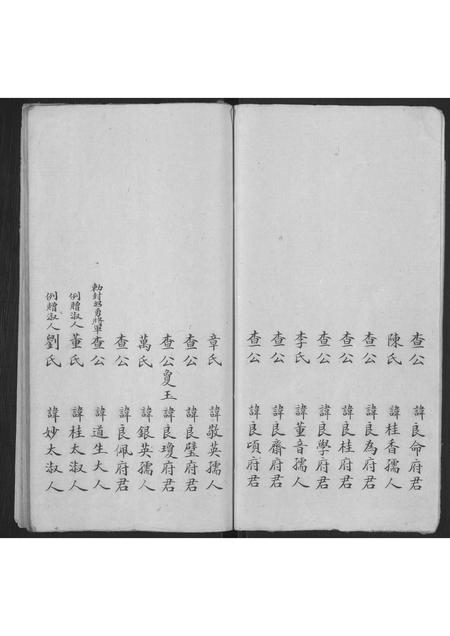 查公　諱良命府君
陳氏　諱桂香孺人
查公　諱良為府君
查公　諱良桂府君
查公　諱良學府君
李氏　諱董音孺人
查公　諱良齋府君
查公　諱良頃府君
章氏　諱敬英孺人
查公　諱良璧府君
查公 夏王 諱良瓊府君
萬氏　諱銀英孺人
查公　諱良佩府君
勅封 勇將軍 查公　諱道生大人
例贈淑人 董氏　諱桂太淑人
例贈淑人 劉氏　諱妙太淑人